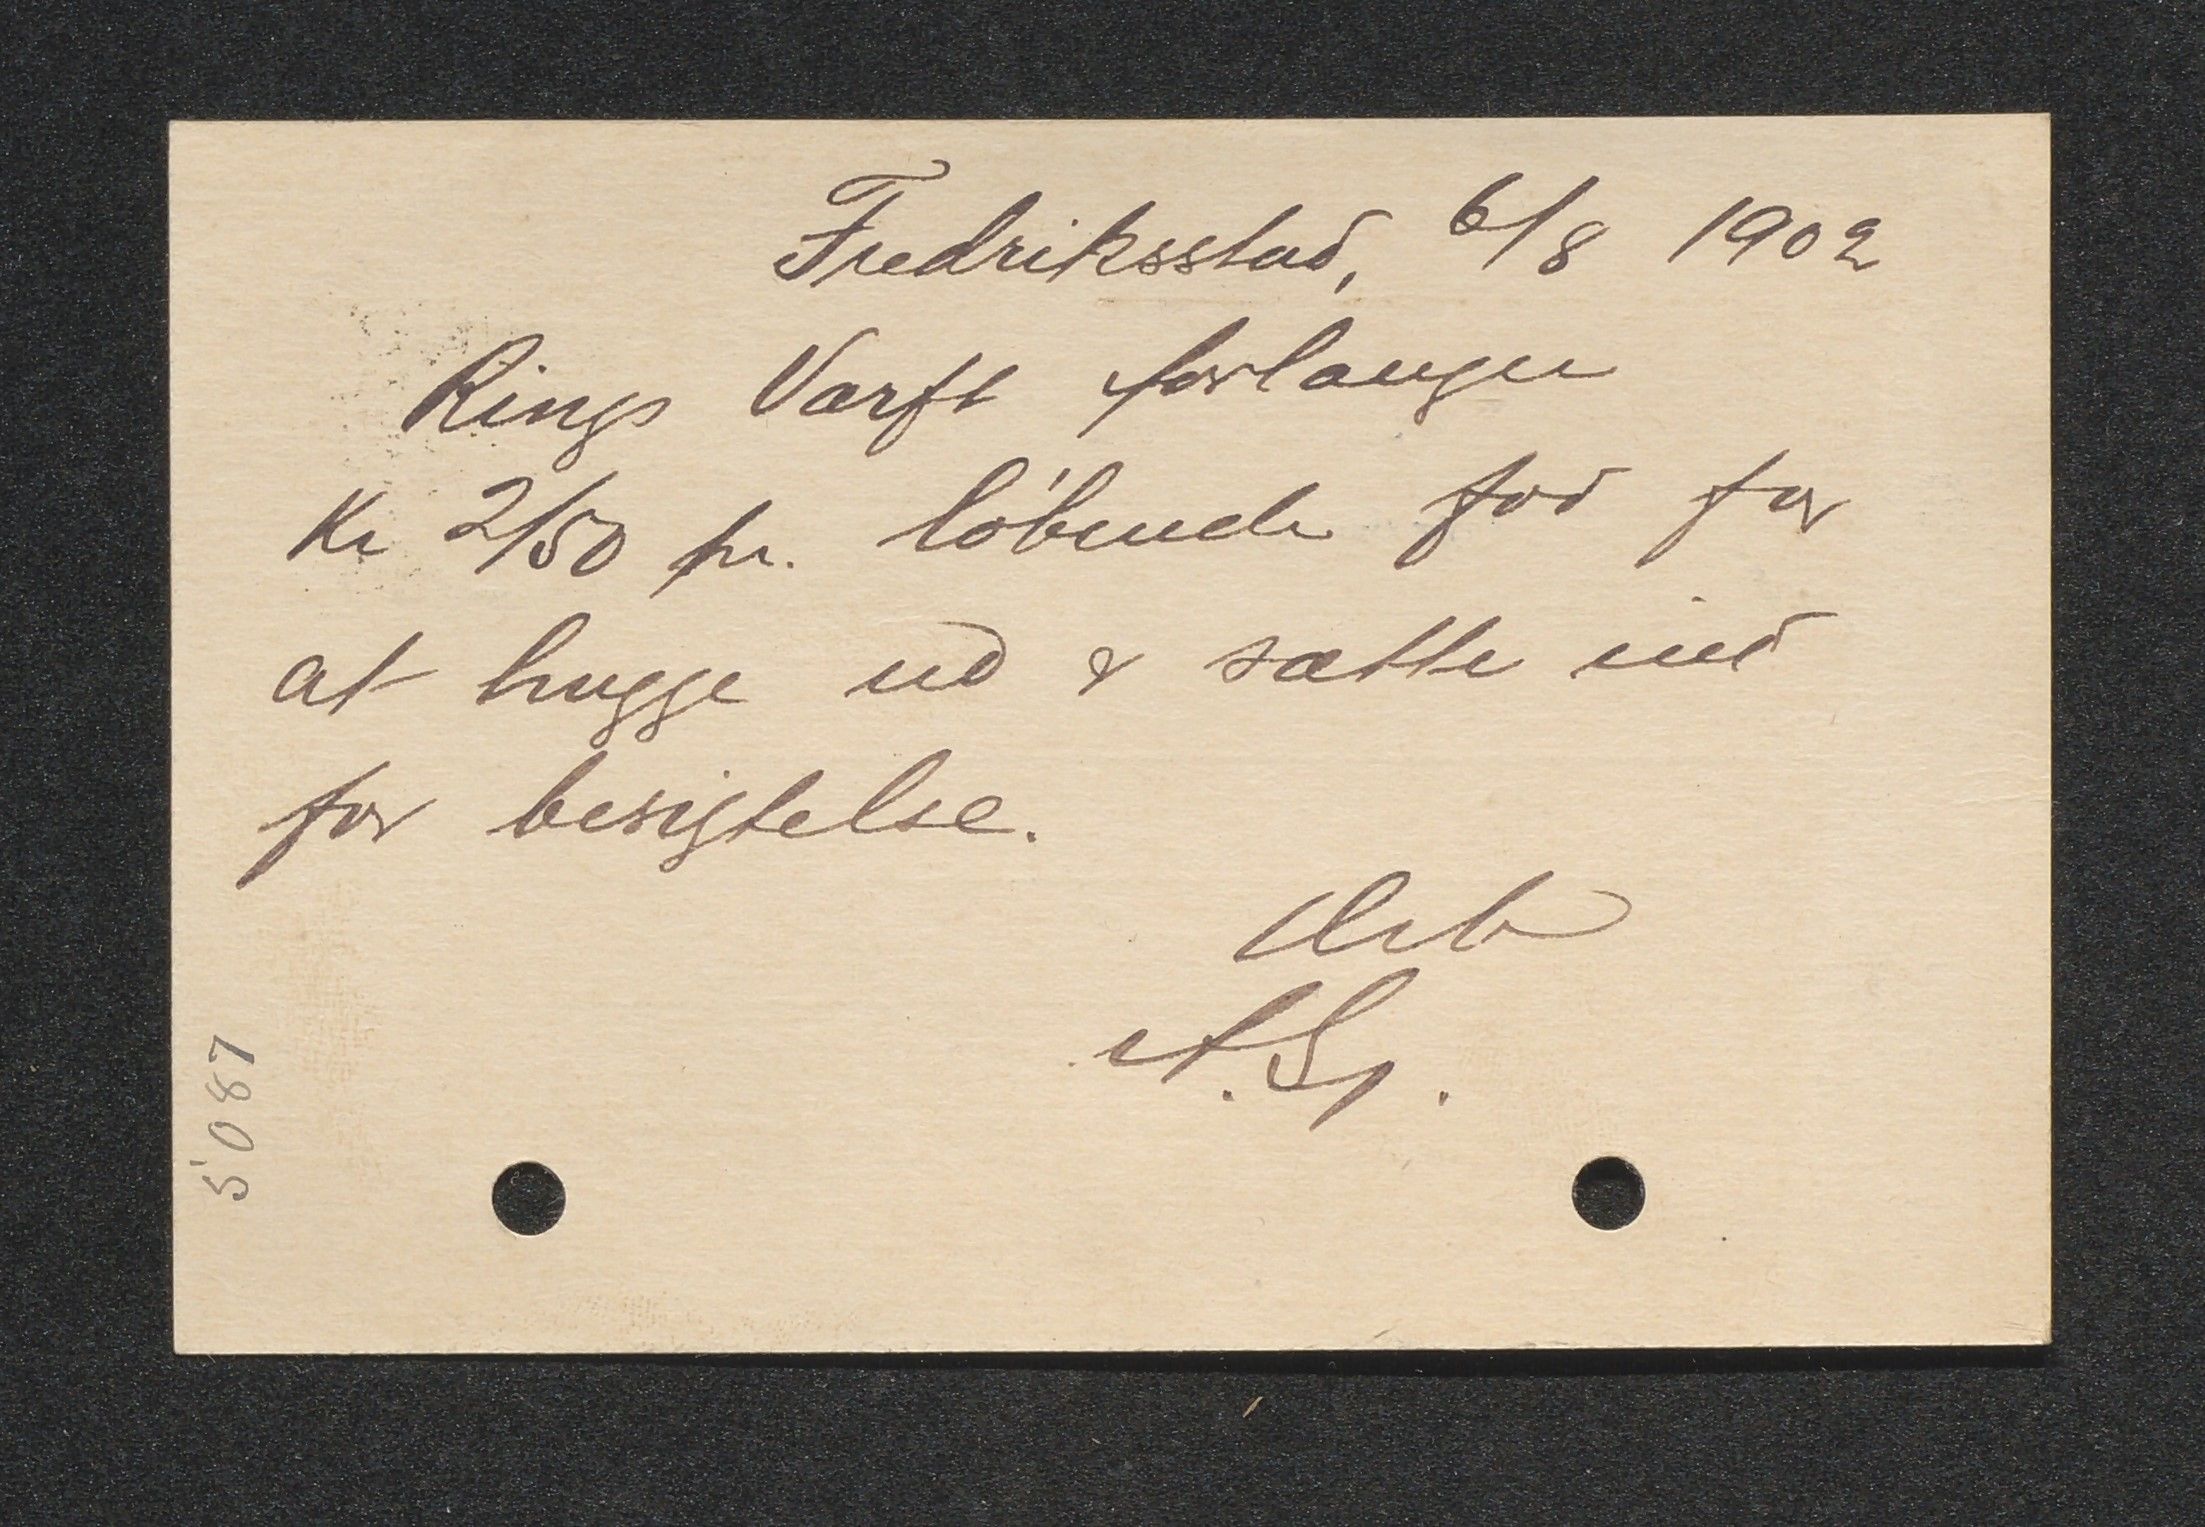 Fredriksstad, 6/8 1902
Rings Værft forlanger
Kr 2/50 pr. löbende fod for
at hugge ud & sætte ind
for besigtelse.
Erb
5087